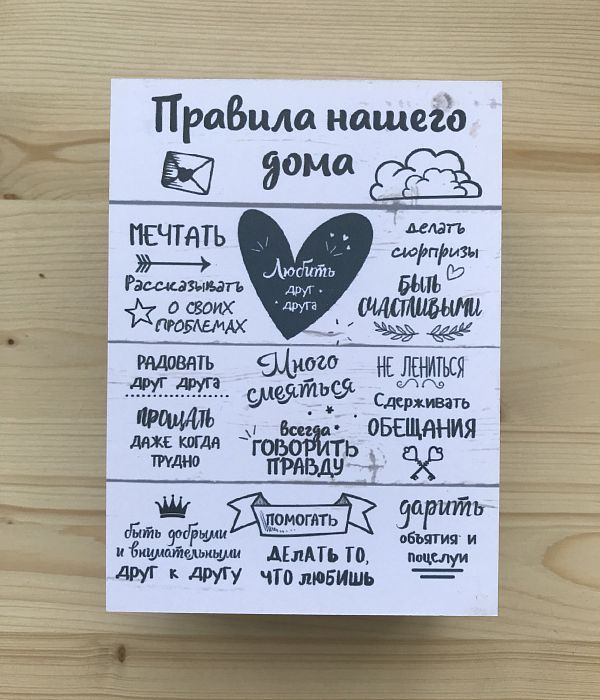 Правила нашего
дома
МЕЧТАТЬ
Рассказывать
О СВОИХ
ПРОБЛЕМАХ
Любить
друг
друга
делать
сюрпризы
БЫТЬ
СЧАСТЛИВЫМИ
РАДОВАТЬ
друг друга
ПРОЩАТЬ
ДАЖЕ КОГДА
ТРУДНО
Много
смеяться
всегда
ГОВОРИТЬ
ПРАВДУ
НЕ ЛЕНИТЬСЯ
Сдерживать
ОБЕЩАНИЯ
быть добрыми
и внимательными
друг к другу
ПОМОГАТЬ
ДЕЛАТЬ ТО,
ЧТО любишь
дарить
объятия и
поцелуи